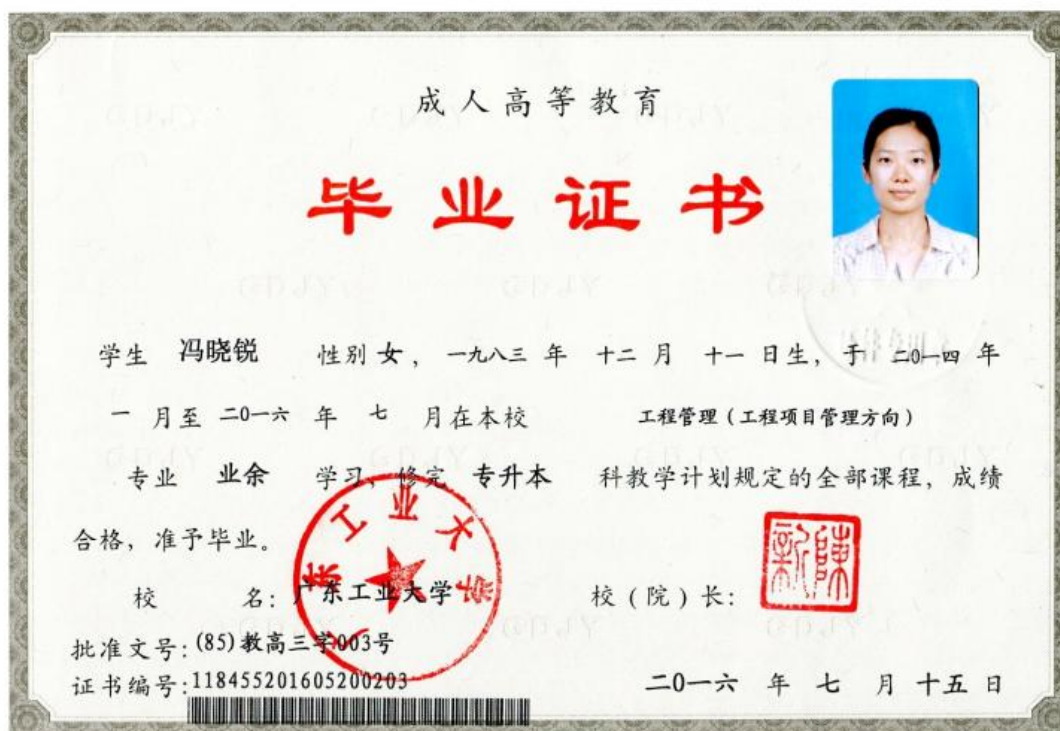 成人高等教育
毕业证书
学生 冯晓锐 性别 女，一九八三 年 十二 月 十一 日生，于 二0一四 年
一 月至 二0一六 年 七 月在本校 工程管理（工程项目管理方向）
专业 业余 学习，修完 专升本 科教学计划规定的全部课程，成绩
合格，准予毕业。
广东工业大学
校 名：广东工业大学 校（院）长：
陈新
批准文号：(85)教高三字003号
证书编号：118455201605200203 二0一六 年 七 月 十五 日